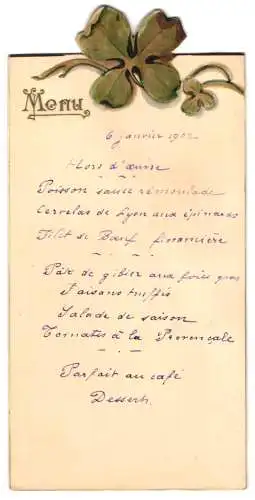 Menu
6 Janvier 1902
Hors d'œuvre
Poisson sauce rémoulade
Cervelas de Lyon aux épinards
Filet de Bœuf financière
Pâté de gibier aux foies gras
Faisans truffés
Salade de saison
Tomates à la Provençale
Parfait au café
Desserts